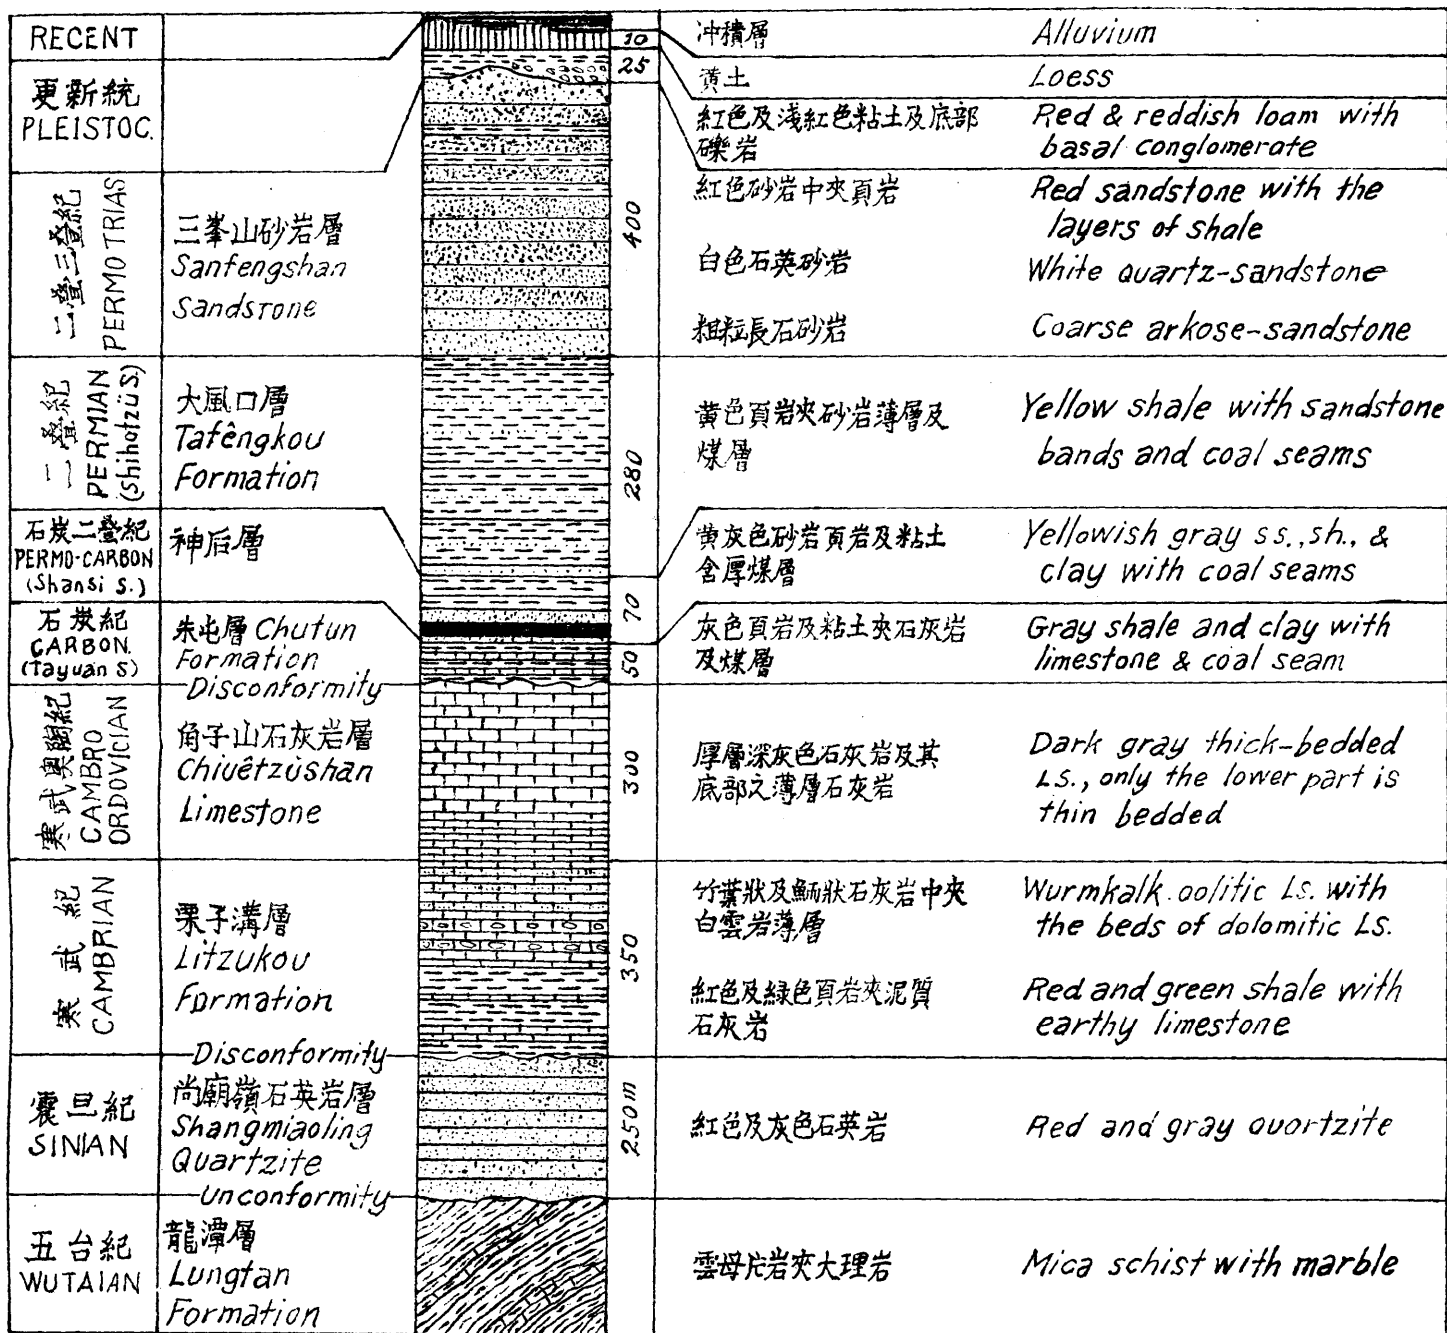 RECENT
10
冲積層
Alluvium
更新統
PLEISTOC.
25
黄土
Loess
紅色及淺紅色粘土及底部
礫岩
Red & reddish loam with
basal conglomerate
二叠三叠紀
PERMO TRIAS
三峯山砂岩層
Sanfengshan
Sandstone
400
紅色砂岩中夾頁岩
Red sandstone with the
layers of shale
白色石英砂岩
White quartz-sandstone
粗粒長石砂岩
Coarse arkose-sandstone
二叠紀
PERMIAN
(Shihotzü S)
大風口層
Tafêngkou
Formation
280
黄色頁岩夾砂岩薄層及
煤層
Yellow shale with sandstone
bands and coal seams
石炭二叠紀
PERMO-CARBON
(Shansi S.)
神后層
70
黄灰色砂岩頁岩及粘土
含厚煤層
Yellowish gray ss., sh., &
clay with coal seams
石炭紀
CARBON.
(Tayuan S)
朱屯層 Chutun
Formation
Disconformity
50
灰色頁岩及粘土夾石灰岩
及煤層
Gray shale and clay with
limestone & coal seam
寒武奥陶紀
CAMBRO
ORDOVICIAN
角子山石灰岩層
Chiuêtzùshan
Limestone
300
厚層深灰色石灰岩及其
底部之薄層石灰岩
Dark gray thick-bedded
Ls., only the lower part is
thin bedded
寒武紀
CAMBRIAN
栗子溝層
Litzukou
Formation
Disconformity
350
竹葉狀及鮞狀石灰岩中夾
白雲岩薄層
Wurmkalk oolitic Ls. with
the beds of dolomitic Ls.
紅色及綠色頁岩夾泥質
石灰岩
Red and green shale with
earthy limestone
震旦紀
SINIAN
尚廟嶺石英岩層
Shangmiaoling
Quartzite
Unconformity
250 m
紅色及灰色石英岩
Red and gray quortzite
五台紀
WUTAIAN
龍潭層
Lungtan
Formation
雲母片岩夾大理岩
Mica schist with marble